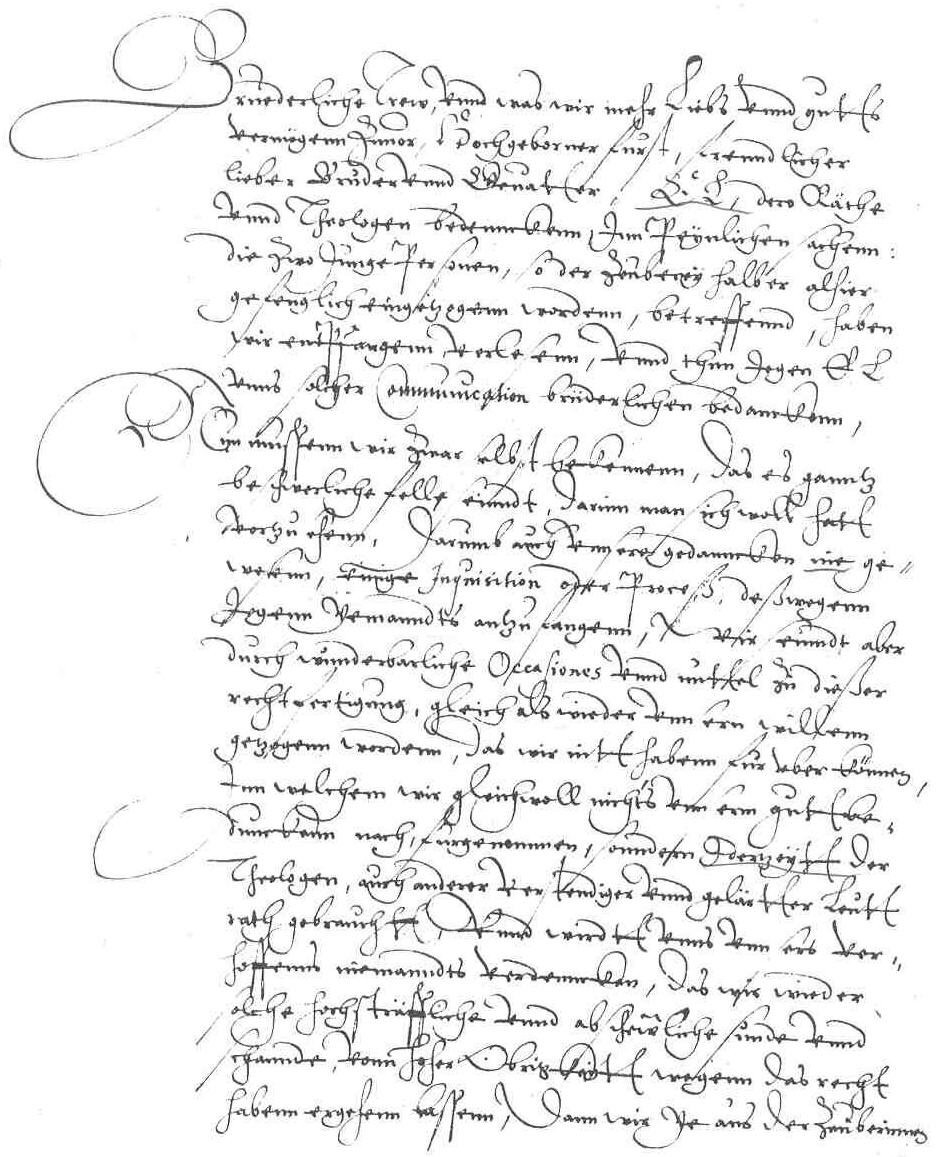 Bruederliche Trew, Vnnd was wir mehr Liebs Vnnd guttes
vermögenn Zuuor, Hochgeborner Fürst, freundlicher
lieber Bruder Vnnd Gevatter, E. L. dero Räthe
Vnnd Theologen bedenncken, Inn Peynlichen sachenn:
die zwo Junge Personen, so der Zeuberey halber alhier
gefenglich eingetzogenn wordenn, betreffennd, haben
wir entpfangenn, Verlesenn, Vnnd thun kegen E L
Vnns solcher Communication brüderlichen bedancken,
Nun müssenn wir zwar selbst bekennenn, das es ganntz
beschwerliche felle seindt, darinn man sich woll hatt
vorzusehenn, Darumb auch Vnnsere gedanncken nie ge=
wesenn, einige Inquisition oder Process, deßwegenn
kegenn Yemanndts anzufangenn, Wir seindt aber
durch wunderbarliche Occasiones Vnnd mittel zu dießer
rechtfertigung, gleich als wieder Vnnsern willenn
getzogenn wordenn, das wir nitt habenn für vber können,
Inn welchem wir gleichwoll nichts Vnnserm gutt be=
dunckenn nach, fürgenommen, sonndern Iderzeytt der
Theologen, auch anderer Verstendiger Vnnd gelärtter Leutt
rath gebraucht, Vnnd wirdt Vnns Vnnsers Ver=
hoffenns niemanndts Verdenncken, das wir wieder
solche hochsträffliche Vnnd abscheuliche sünde Vnnd
schannde, Vonn hoher Obrigkeytt wegenn das recht
habenn ergehenn lassenn, Dann wir Ye aus der Zeuberinnen